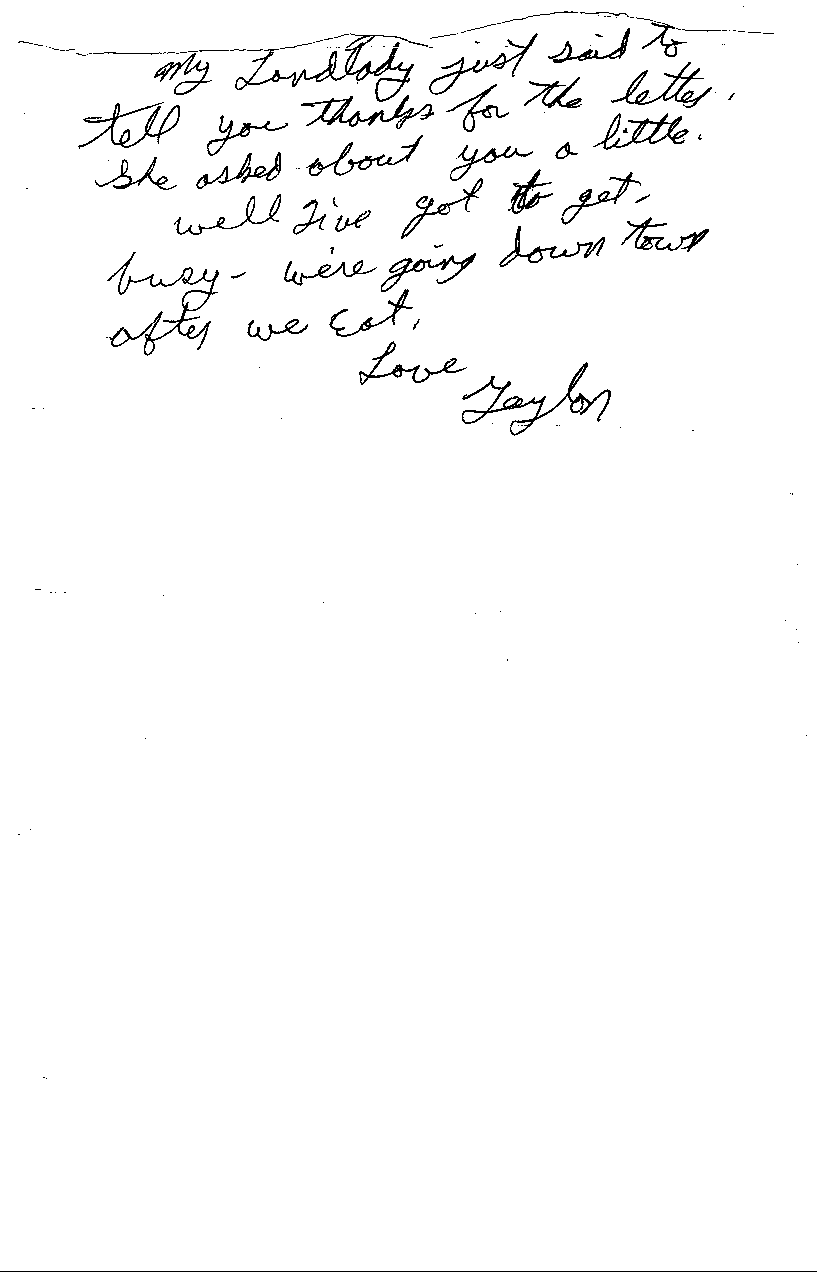 My Landlady just said to
tell you thanks for the letter.
She asked about you a little.
well I've got to get
busy - we're going down town
after we Eat,
Love
Taylor